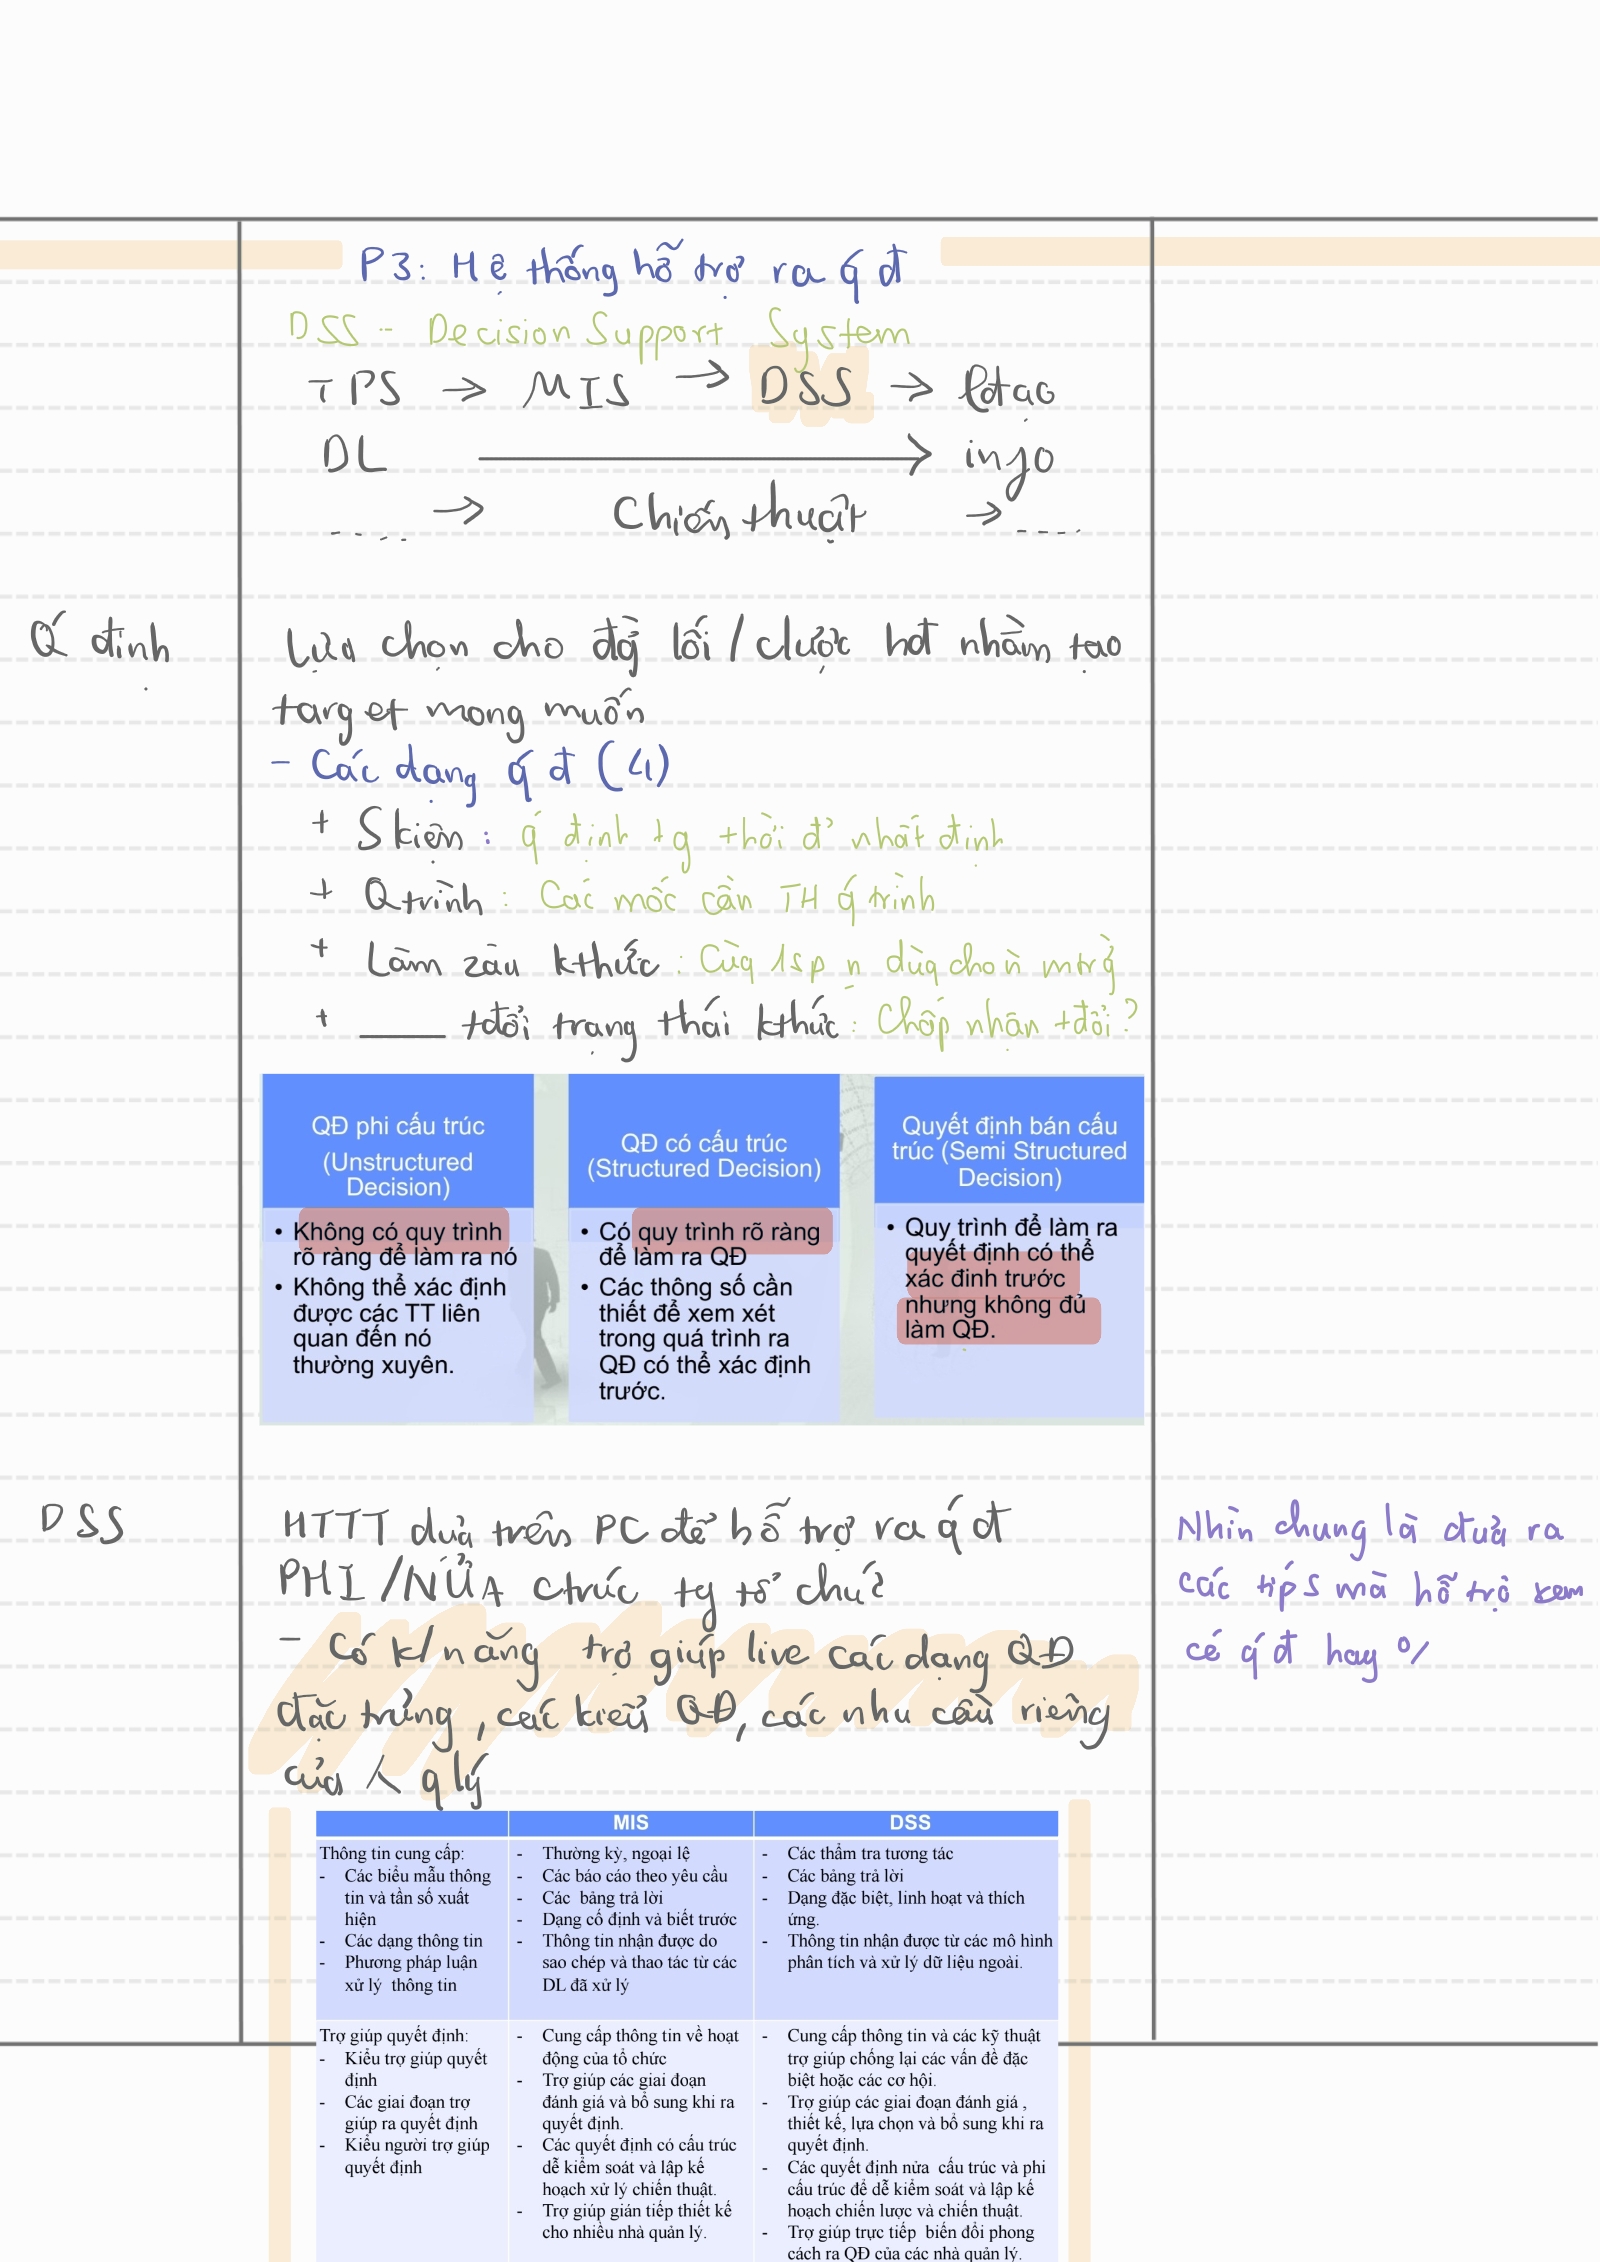 P3: Hệ thống hỗ trợ ra q' đ
DSS - Decision Support System
TPS → MIS → DSS → lđtạo
DL → info
..... → Chiến thuật → .....
Q' định
Lựa chọn cho đg lối / clược hđ nhằm tạo
target mong muốn
- Các dạng q' đ (4)
+ Skiện : q' định tg thời đ' nhất định
+ Qtrình : Các mốc cần TH q' trình
+ Làm zàu kthức : Cùg 1sp n dùg cho mtrg
+ ____ tđổi trạng thái kthức : Chấp nhận tđổi?
QĐ phi cấu trúc
(Unstructured
Decision)
• Không có quy trình
rõ ràng để làm ra nó
• Không thể xác định
được các TT liên
quan đến nó
thường xuyên.
QĐ có cấu trúc
(Structured Decision)
• Có quy trình rõ ràng
để làm ra QĐ
• Các thông số cần
thiết để xem xét
trong quá trình ra
QĐ có thể xác định
trước.
Quyết định bán cấu
trúc (Semi Structured
Decision)
• Quy trình để làm ra
quyết định có thể
xác đinh trước
nhưng không đủ
làm QĐ.
DSS
HTTT dựa trên PC để hỗ trợ ra q' đ
PHI /NỬA ctrúc tg tổ chức
- Có k/năng trợ giúp live các dạng QĐ
đặc trưng, các kiểu QĐ, các nhu cầu riêng
của 人 q lý
Nhìn chung là đưa ra
các tips mà hỗ trợ xem
có q' đ hay %
MIS
DSS
Thông tin cung cấp:
- Các biểu mẫu thông
tin và tần số xuất
hiện
- Các dạng thông tin
- Phương pháp luận
xử lý thông tin
- Thường kỳ, ngoại lệ
- Các báo cáo theo yêu cầu
- Các bảng trả lời
- Dạng cố định và biết trước
- Thông tin nhận được do
sao chép và thao tác từ các
DL đã xử lý
- Các thẩm tra tương tác
- Các bảng trả lời
- Dạng đặc biệt, linh hoạt và thích
ứng.
- Thông tin nhận được từ các mô hình
phân tích và xử lý dữ liệu ngoài.
Trợ giúp quyết định:
- Kiểu trợ giúp quyết
định
- Các giai đoạn trợ
giúp ra quyết định
- Kiểu người trợ giúp
quyết định
- Cung cấp thông tin về hoạt
động của tổ chức
- Trợ giúp các giai đoạn
đánh giá và bổ sung khi ra
quyết định.
- Các quyết định có cấu trúc
dễ kiểm soát và lập kế
hoạch xử lý chiến thuật.
- Trợ giúp gián tiếp thiết kế
cho nhiều nhà quản lý.
- Cung cấp thông tin và các kỹ thuật
trợ giúp chống lại các vấn đề đặc
biệt hoặc các cơ hội.
- Trợ giúp các giai đoạn đánh giá ,
thiết kế, lựa chọn và bổ sung khi ra
quyết định.
- Các quyết định nửa cấu trúc và phi
cấu trúc để dễ kiểm soát và lập kế
hoạch chiến lược và chiến thuật.
- Trợ giúp trực tiếp biến đổi phong
cách ra QĐ của các nhà quản lý.